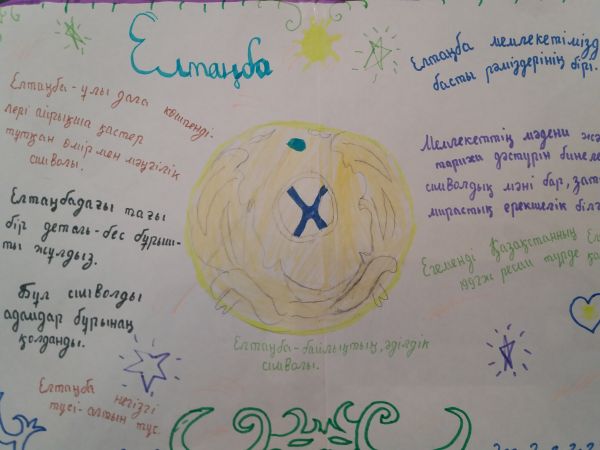 Елтаңба
Елтаңба - ұлы дала көшпенді-
лері айрықша қастер
тұтқан өмір мен мәңгілік
символы.
Елтаңбадағы тағы
бір деталь-бес бұрыш-
ты жұлдыз.
Бұл символды
адамдар бұрыннан
қолданды.
Елтаңба негізгі
түсі-алтын түс.
Елтаңба-байлықтың, әділдік
символы.
Елтаңба мемлекетімізд
басты рәміздерінің бірі.
Мемлекеттің мәдени жә
тарихи дәстүрін бинеле
символдық мәні бар, зат
мирастық ерекшелік біл
Егеменді Қазақстанның Ел
1992ж ресми түрде қа